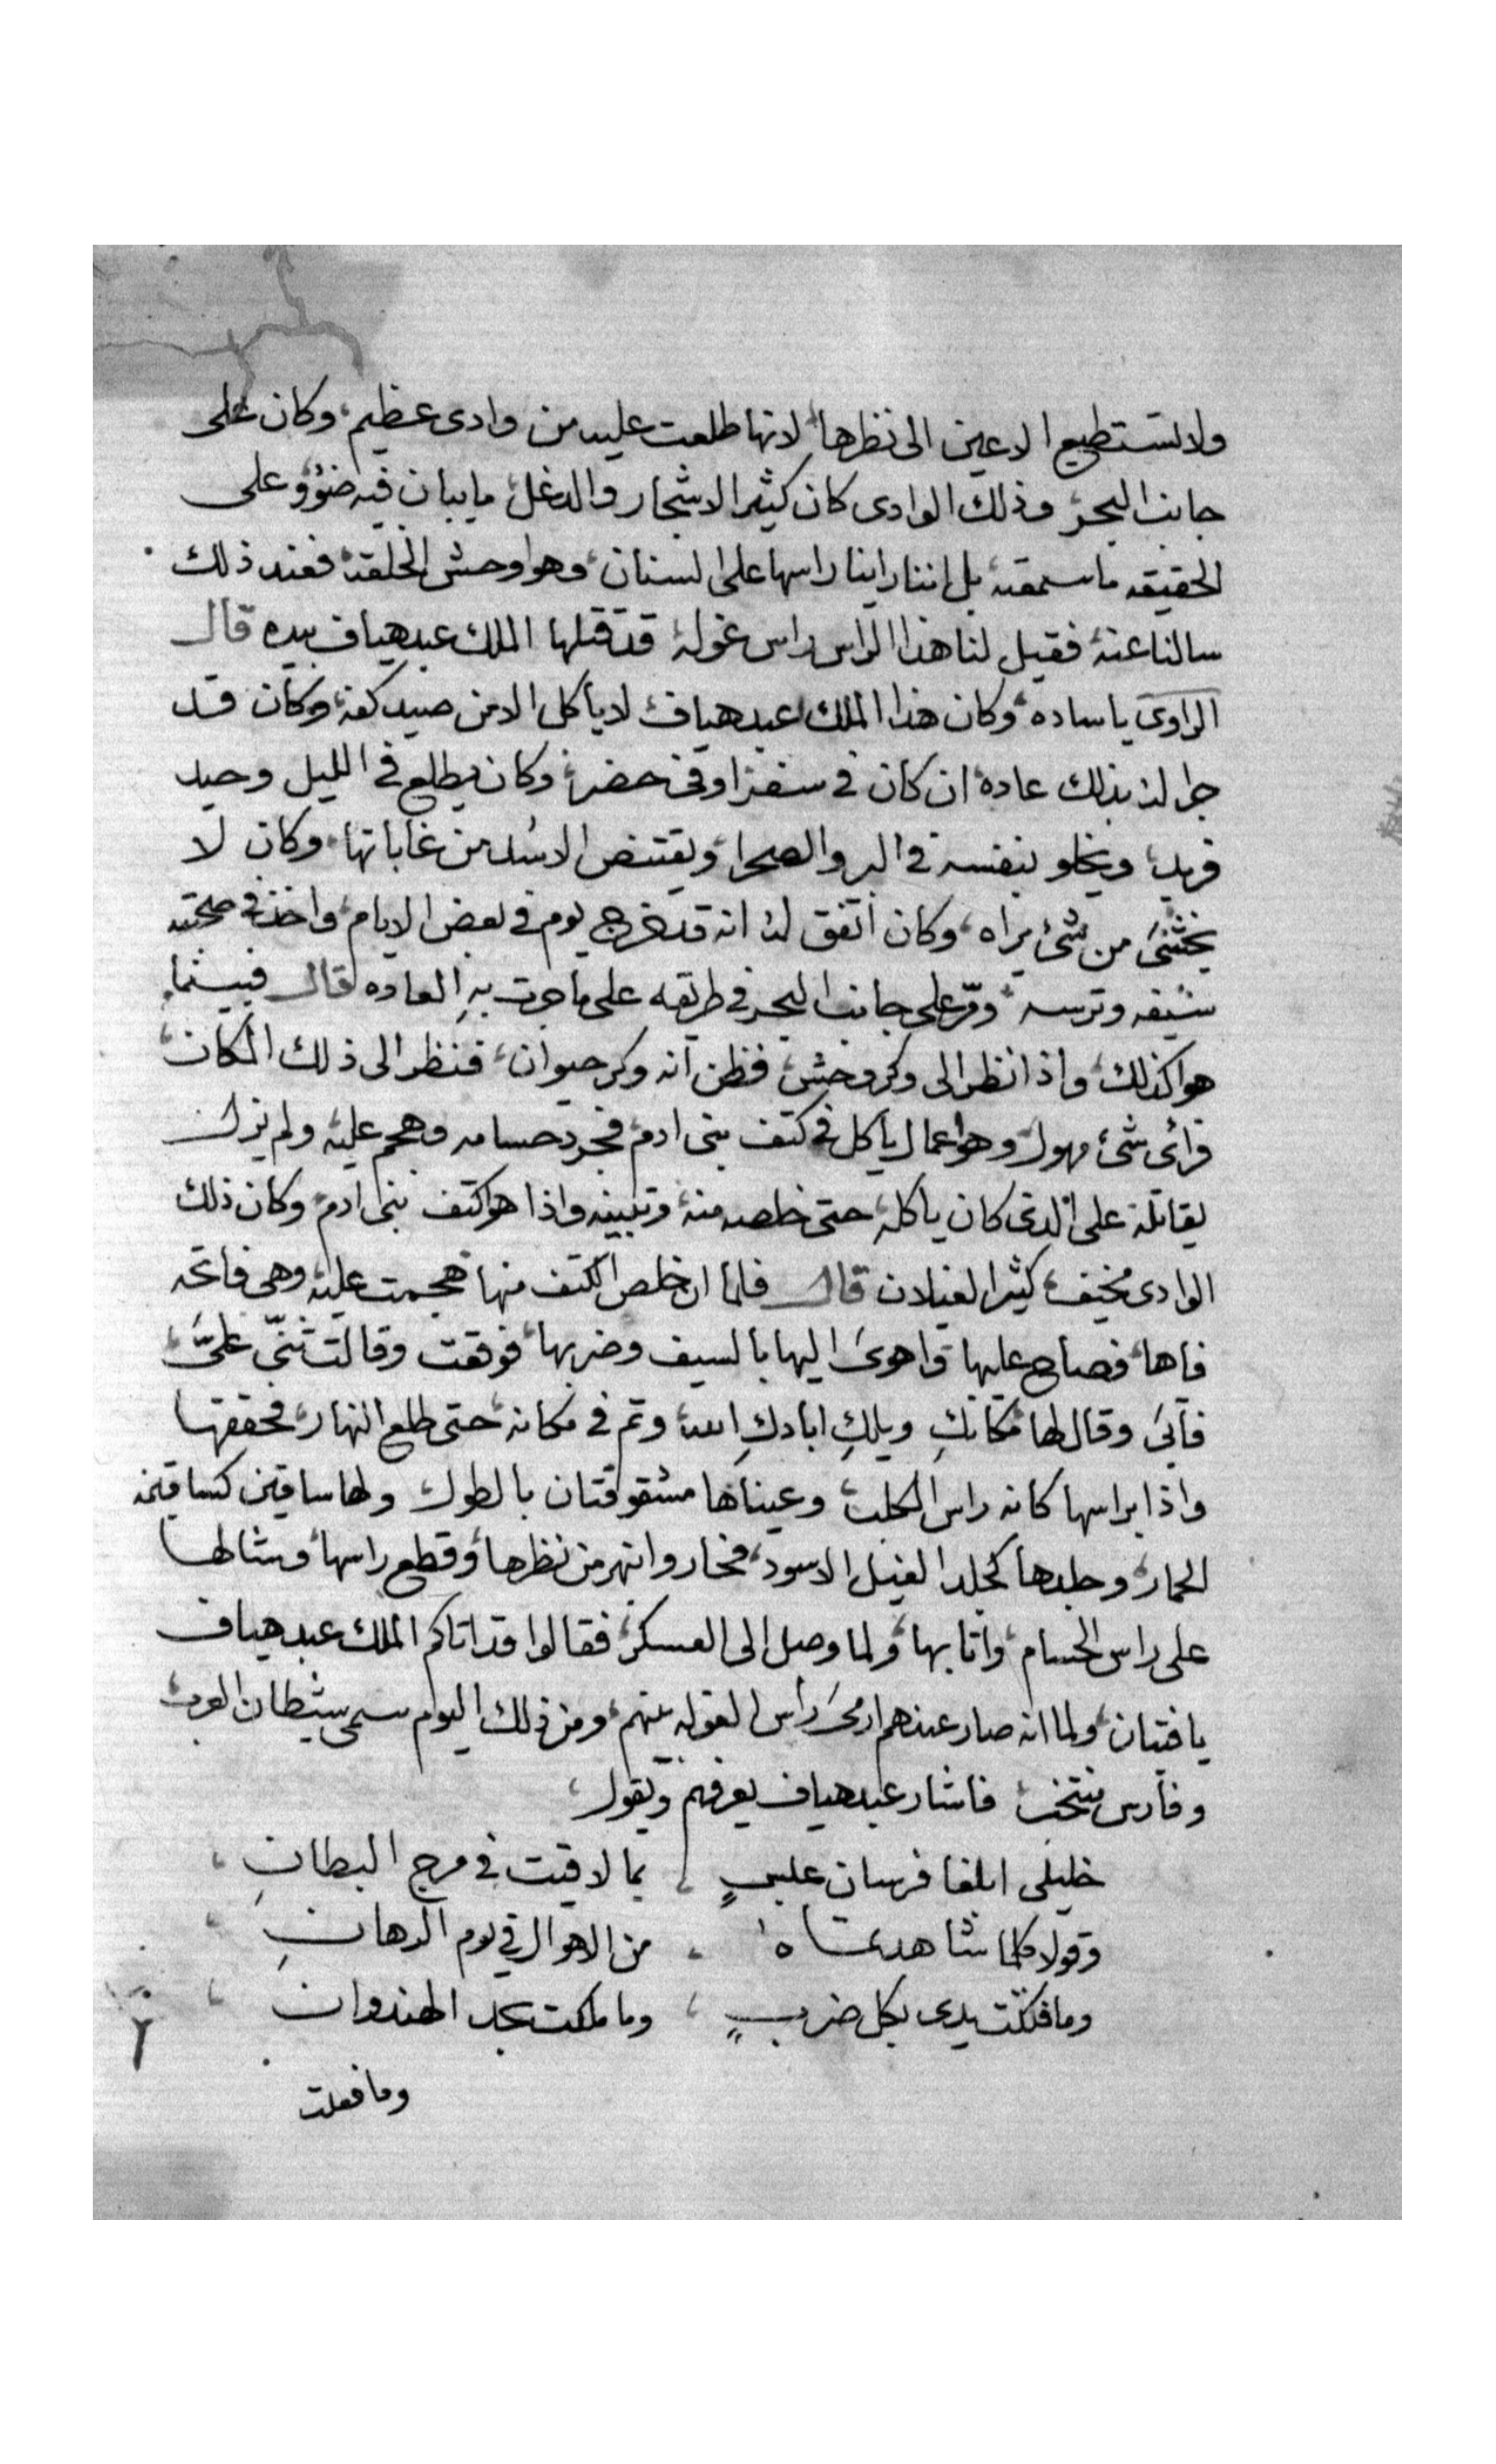 ولا تستطيع الاعين الى نظرها، لانها طلعت عليه من وادى عظيم، وكان على
جانب البحر، وذلك الوادى كان كثير الاشجار والدغل، ما يبان فيه ضوؤ وعلى
الحقيقه ما سمعته، بل اننا راينا راسها على السنان، وهو اوحش الخلقة، فعند ذلك
سالنا عنه، فقيل لنا هذا الراس راس غولة، قد قتلها الملك عبد هياف بيده قال
الراوى يا ساده، وكان هذا الملك عبد هياف، لا يأكل الا من صيد كفه، وكان قد
جرا له بذلك عاده، ان كان فى سفر، او فى حضر، وكان يطلع فى الليل وحيد
فريد، ويخلو بنفسه فى البر والصحرا، ويقتنص الاسد من غاباتها، وكان لا
يختشى من شئ يراه، وكان اتفق له انه قد خرج يوم فى بعض الايام، واخذ فى صحبته
سيفه وترسه، ومرّ على جانب البحر فى طريقه على ما جرت به العاده قال فبينما
هو كذلك، واذا نظر الى وكر وحش، فظن انه وكر حيوان، فنظر الى ذلك المكان،
فرائ شئ مهول، وهو عمال يأكل فى كتف بنى ادم، فجرد حسامه وهجم عليه، ولم يزل
يقاتله على الذى كان ياكله، حتى خلصه منه، وتبينه واذا هو كتف بنى ادم، وكان ذلك
الوادى مخيف، كثير الغيلان قال فلما ان خلص الكتف منها، هجمت عليه، وهى فاتحه
فاها، فصاح عليها واهوى اليها بالسيف وضربها، فوقعت وقالت ثنّى علىّ،
فأبى وقال لها مكانكِ ويلكِ ابادكِ الله، وتم فى مكانه، حتى طلع النهار، فحققها
واذا براسها كانه راس الكلب، وعيناها مشقوقتان بالطول، ولها ساقين كساقين
الحمار، وجلدها كجلد الفيل الاسود، فحار وانبهر من نظرها، وقطع راسها، وشالها
على راس الحسام، واتا بها، ولما وصل الى العسكر، فقالوا قد اتاكم الملك عبد هياف
يا فتيان، ولما انه صار عندهم ارمى رأس الغوله بينهم، ومن ذلك اليوم سمى شيطان العرب،
وفارس منتخب، فاشار عبد هياف يعرفهم ويقول،
خليلى ابلغا فرسان عبسٍ، بما لاقيت فى مرج البطانِ،
وقولا كلما شاهدتماه، من الاهوال فى يوم الرهانِ،
وما فتكت يدى بكل ضربٍ، وما ملكت بحد الهندوانِ،
وما فعلت